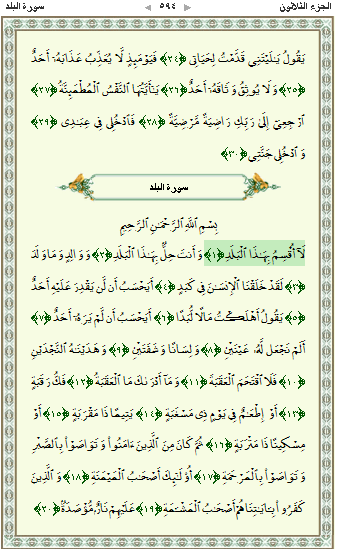 الجزء الثلاثون ٥٩٤ سورة البلد
يَقُولُ يَٰلَيْتَنِى قَدَّمْتُ لِحَيَاتِى ﴿٢٤﴾ فَيَوْمَئِذٍ لَّا يُعَذِّبُ عَذَابَهُۥٓ أَحَدٌ
﴿٢٥﴾ وَلَا يُوثِقُ وَثَاقَهُۥٓ أَحَدٌ ﴿٢٦﴾ يَٰٓأَيَّتُهَا ٱلنَّفْسُ ٱلْمُطْمَئِنَّةُ ﴿٢٧﴾
ٱرْجِعِىٓ إِلَىٰ رَبِّكِ رَاضِيَةً مَّرْضِيَّةً ﴿٢٨﴾ فَٱدْخُلِى فِى عِبَٰدِى ﴿٢٩﴾
وَٱدْخُلِى جَنَّتِى ﴿٣٠﴾
سورة البلد
بِسْمِ ٱللَّهِ ٱلرَّحْمَٰنِ ٱلرَّحِيمِ
لَآ أُقْسِمُ بِهَٰذَا ٱلْبَلَدِ ﴿١﴾ وَأَنتَ حِلٌّۢ بِهَٰذَا ٱلْبَلَدِ ﴿٢﴾ وَوَالِدٍ وَمَا وَلَدَ
﴿٣﴾ لَقَدْ خَلَقْنَا ٱلْإِنسَٰنَ فِى كَبَدٍ ﴿٤﴾ أَيَحْسَبُ أَن لَّن يَقْدِرَ عَلَيْهِ أَحَدٌ
﴿٥﴾ يَقُولُ أَهْلَكْتُ مَالًا لُّبَدًا ﴿٦﴾ أَيَحْسَبُ أَن لَّمْ يَرَهُۥٓ أَحَدٌ ﴿٧﴾
أَلَمْ نَجْعَل لَّهُۥ عَيْنَيْنِ ﴿٨﴾ وَلِسَانًا وَشَفَتَيْنِ ﴿٩﴾ وَهَدَيْنَٰهُ ٱلنَّجْدَيْنِ
﴿١٠﴾ فَلَا ٱقْتَحَمَ ٱلْعَقَبَةَ ﴿١١﴾ وَمَآ أَدْرَىٰكَ مَا ٱلْعَقَبَةُ ﴿١٢﴾ فَكُّ رَقَبَةٍ
﴿١٣﴾ أَوْ إِطْعَٰمٌ فِى يَوْمٍ ذِى مَسْغَبَةٍ ﴿١٤﴾ يَتِيمًا ذَا مَقْرَبَةٍ ﴿١٥﴾ أَوْ
مِسْكِينًا ذَا مَتْرَبَةٍ ﴿١٦﴾ ثُمَّ كَانَ مِنَ ٱلَّذِينَ ءَامَنُوا۟ وَتَوَاصَوْا۟ بِٱلصَّبْرِ
وَتَوَاصَوْا۟ بِٱلْمَرْحَمَةِ ﴿١٧﴾ أُو۟لَٰٓئِكَ أَصْحَٰبُ ٱلْمَيْمَنَةِ ﴿١٨﴾ وَٱلَّذِينَ
كَفَرُوا۟ بِـَٔايَٰتِنَا هُمْ أَصْحَٰبُ ٱلْمَشْـَٔمَةِ ﴿١٩﴾ عَلَيْهِمْ نَارٌ مُّؤْصَدَةٌۢ ﴿٢٠﴾